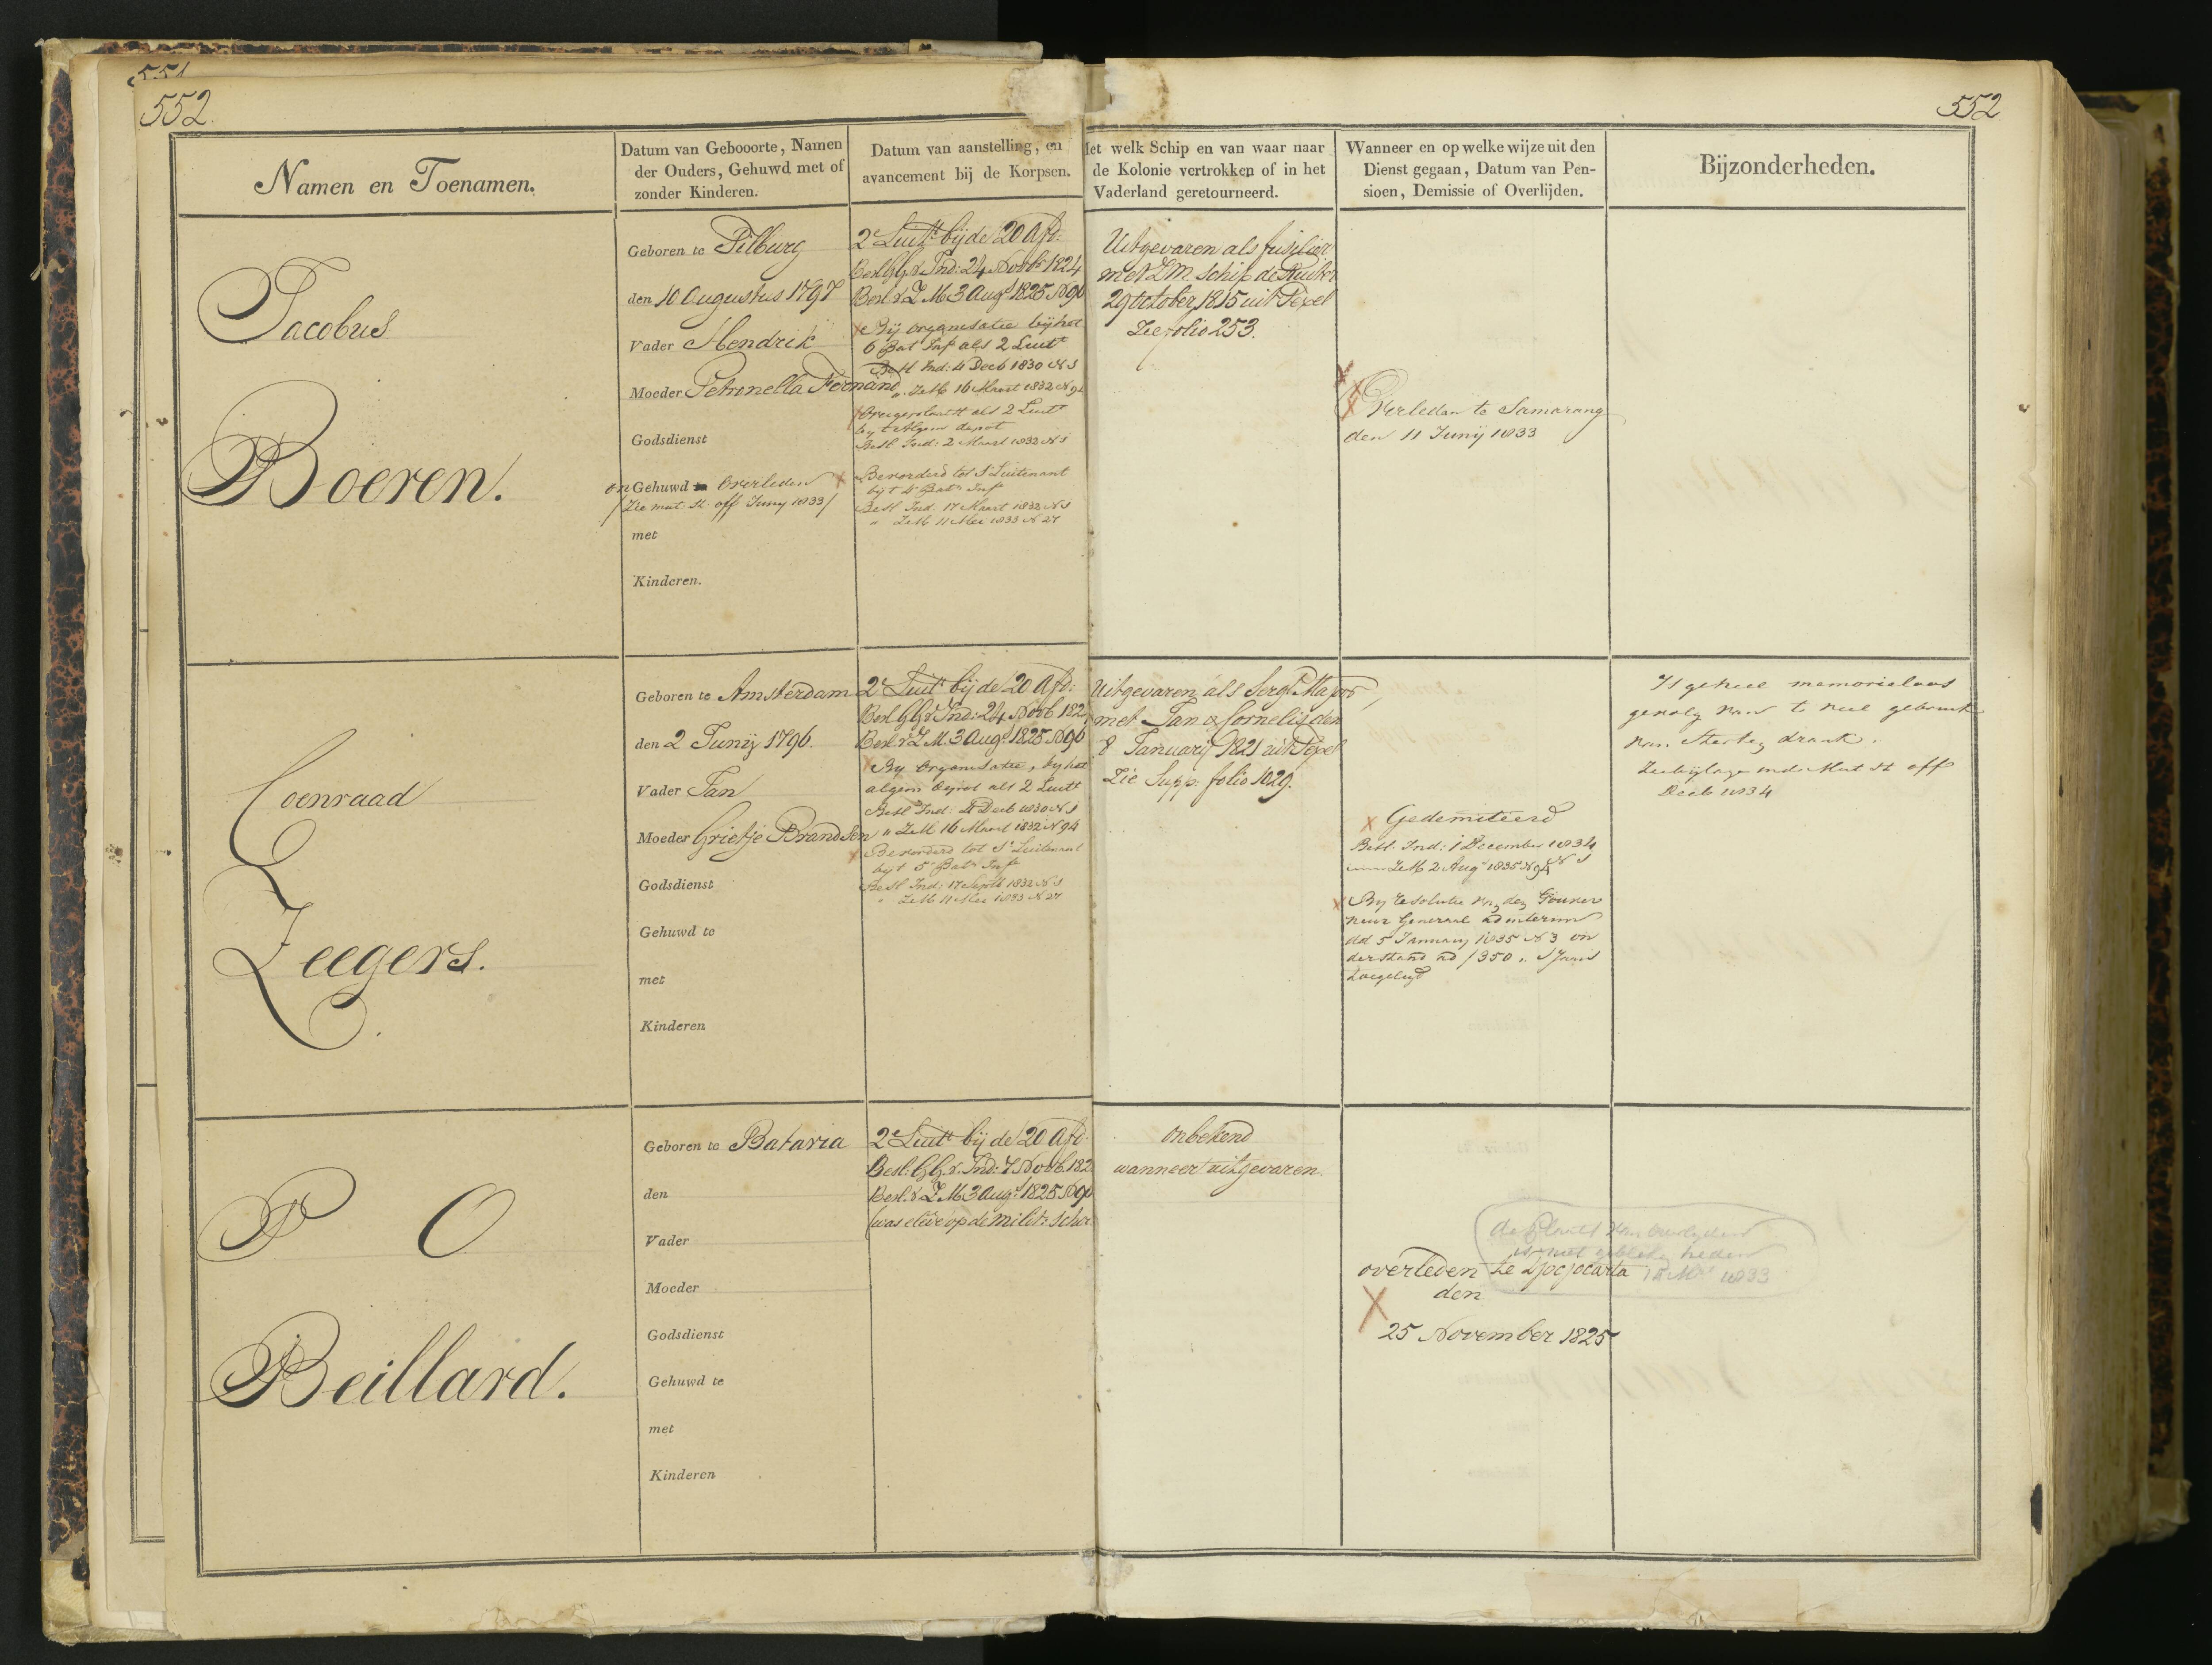 551
552.
552.
Namen en Toenamen.
Datum van Gebooorte, Namen
der Ouders, Gehuwd met of
zonder Kinderen.
Datum van aanstelling, en
avancement bij de Korpsen.
Met welk Schip en van waar naar
de Kolonie vertrokken of in het
Vaderland geretourneerd.
Wanneer en op welke wijze uit den
Dienst gegaan, Datum van Pen-
sioen, Demissie of Overlijden.
Bijzonderheden.
Jacobus
Boeren.
Geboren te Tilburg
den 10 Augustus 1797
Vader Hendrik
Moeder Petronella Fernand
Godsdienst
onGehuwd Overleden
/Zie mut. St. off Juny 1833/
met
Kinderen.
2e Luitt bij de 20 Afd:
Besl GG v Ind: 24 Novbr 1824
Besl v Z M 3 Augt 1825 No 90
Bij organisatie bij het
6 Bat Inf als 2 Luitt
Besl Ind: 4 Decb 1830 N 1
" ZM 16 Maart 1832 N 94
Overgeplaatst als 2 Luitt
by t Algem depot
Besl Ind: 2 Maart 1832 N 1
Bevorderd tot 1e Luitenant
bijt 4e Batn Inf
Besl Ind. 17 Maart 1832 N 1
" ZM 11 Mei 1833 N 27
Uitgevaren als fusilier
met ZM. Schip de Ruiter
29 October 1815 uit Texel
Zie folio 253.
Overleden te Samarang
den 11 Junij 1833
Coenraad
Zeegers.
Geboren te Amsterdam
den 2 Junij 1796.
Vader Jan
Moeder Grietje Brandsen
Godsdienst
Gehuwd te
met
Kinderen
2e Luitt bij de 20 Afd:
Besl GG v Ind: 24 Novb 182
Besl v Z. M. 3 Augt 1825 No 90
By Organisatie, by het
algem depot als 2 Luitt
Besl Ind: 4 Decb 1830 N 1
" ZM 16 Maart 1832 N 94
Bevorderd tot 1e Luitenant
bijt 5e Batn Inf
Besl Ind: 17 Septb 1832 N 1
" ZM 11 Mei 1833 N 27
Uitgevaren als Sergt Majoor,
met Jan & Cornelis den
8 Januarij 1821 uit Texel
Zie Supp. folio 1029.
Gedemitteerd
Besl. Ind: 1 December 1834
N 1
ZM 2 Aug 1835 N 94
By resolutie van den Gouver
neur Generaal ad interim
dd 5 January 1835 N 3 on
derstand ad f 350 " 's Jaars
toegelegd
Is geheel memorieloos
gevolg van te veel gebruik
van sterken drank.
Zie bijlage ind. Mut St off
Decb 1834
P O
Beillard.
Geboren te Batavia
den
Vader
Moeder
Godsdienst
Gehuwd te
met
Kinderen
2e Luitt bij de 20 Afd.
Besl. GG v. Ind: 7 Novb. 182
Besl. v Z. M 3 Augt 1825 No 90
(was eleve op de milit: school
onbekend
wanneer uitgevaren.
de plaats van overlijden
is niet gebleken heden
1833
overleden te Djocjocarta
den
25 November 1825